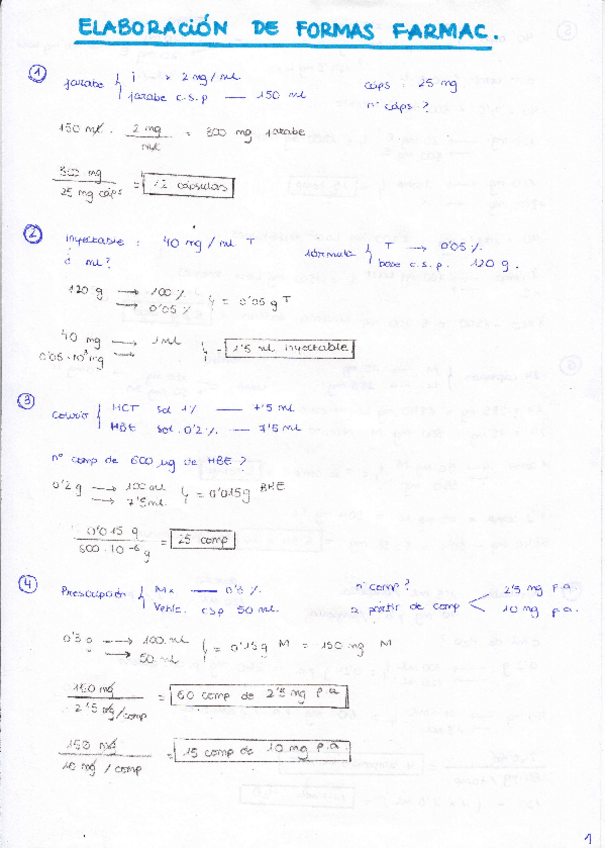 ELABORACIÓN DE FORMAS FARMAC.
① jarabe { i > 2 mg/ml cáps : 25 mg
jarabe c.s.p — 150 ml nº cáps ?
150 ml · 2 mg / ml = 300 mg jarabe
300 mg / 25 mg cáps = 12 cápsulas
② inyectable : 40 mg/ml T fórmula { T → 0'05 %.
¿ ml? base c.s.p. 120 g.
120 g → 100 %
→ 0'05 % } = 0'05 g T
40 mg → 1 ml
0'05·10³ mg → } = 1'5 ml inyectable
③ Colirio { HCT sol 1% — 7'5 ml
HBE sol. 0'2 %. — 7'5 ml
nº comp de 600 µg de HBE ?
0'2 g → 100 ml
→ 7'5 ml } = 0'015 g BHE
0'015 g / 600·10⁻⁶ g = 25 comp
④ Prescripción { Mx — 0'3 %. nº comp? 2'5 mg p.a.
Vehíc. csp 50 ml. a partir de comp < 10 mg p.a.
0'3 g → 100 ml
→ 50 ml } = 0'15 g M = 150 mg M
150 mg / 2'5 mg/comp = 60 comp de 2'5 mg p.a
150 mg / 10 mg / comp = 15 comp de 10 mg p.a
1